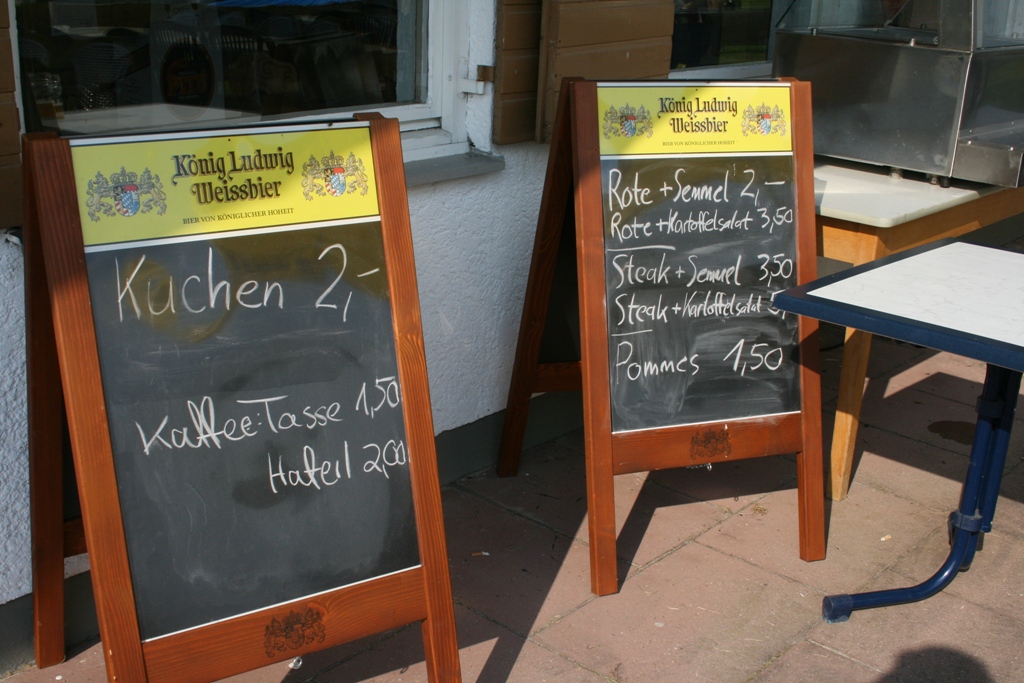 König Ludwig
Weissbier
BIER VON KÖNIGLICHER HOHEIT
Kuchen 2,-
Kaffee: Tasse 1,50
Haferl 2,00
König Ludwig
Weissbier
BIER VON KÖNIGLICHER HOHEIT
Rote + Semmel 2,-
Rote + Kartoffelsalat 3,50
Steak + Semmel 3,50
Steak + Kartoffelsalat
Pommes 1,50